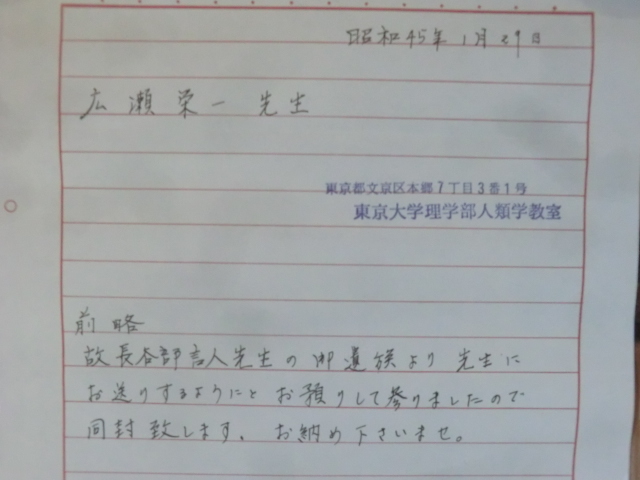 昭和45年1月29日
広瀬栄一先生
東京都文京区本郷7丁目3番1号
東京大学理学部人類学教室
前略
故長谷部言人先生の御遺族より先生に
お送りするようにとお預りして参りましたので
同封致します、お納め下さいませ。